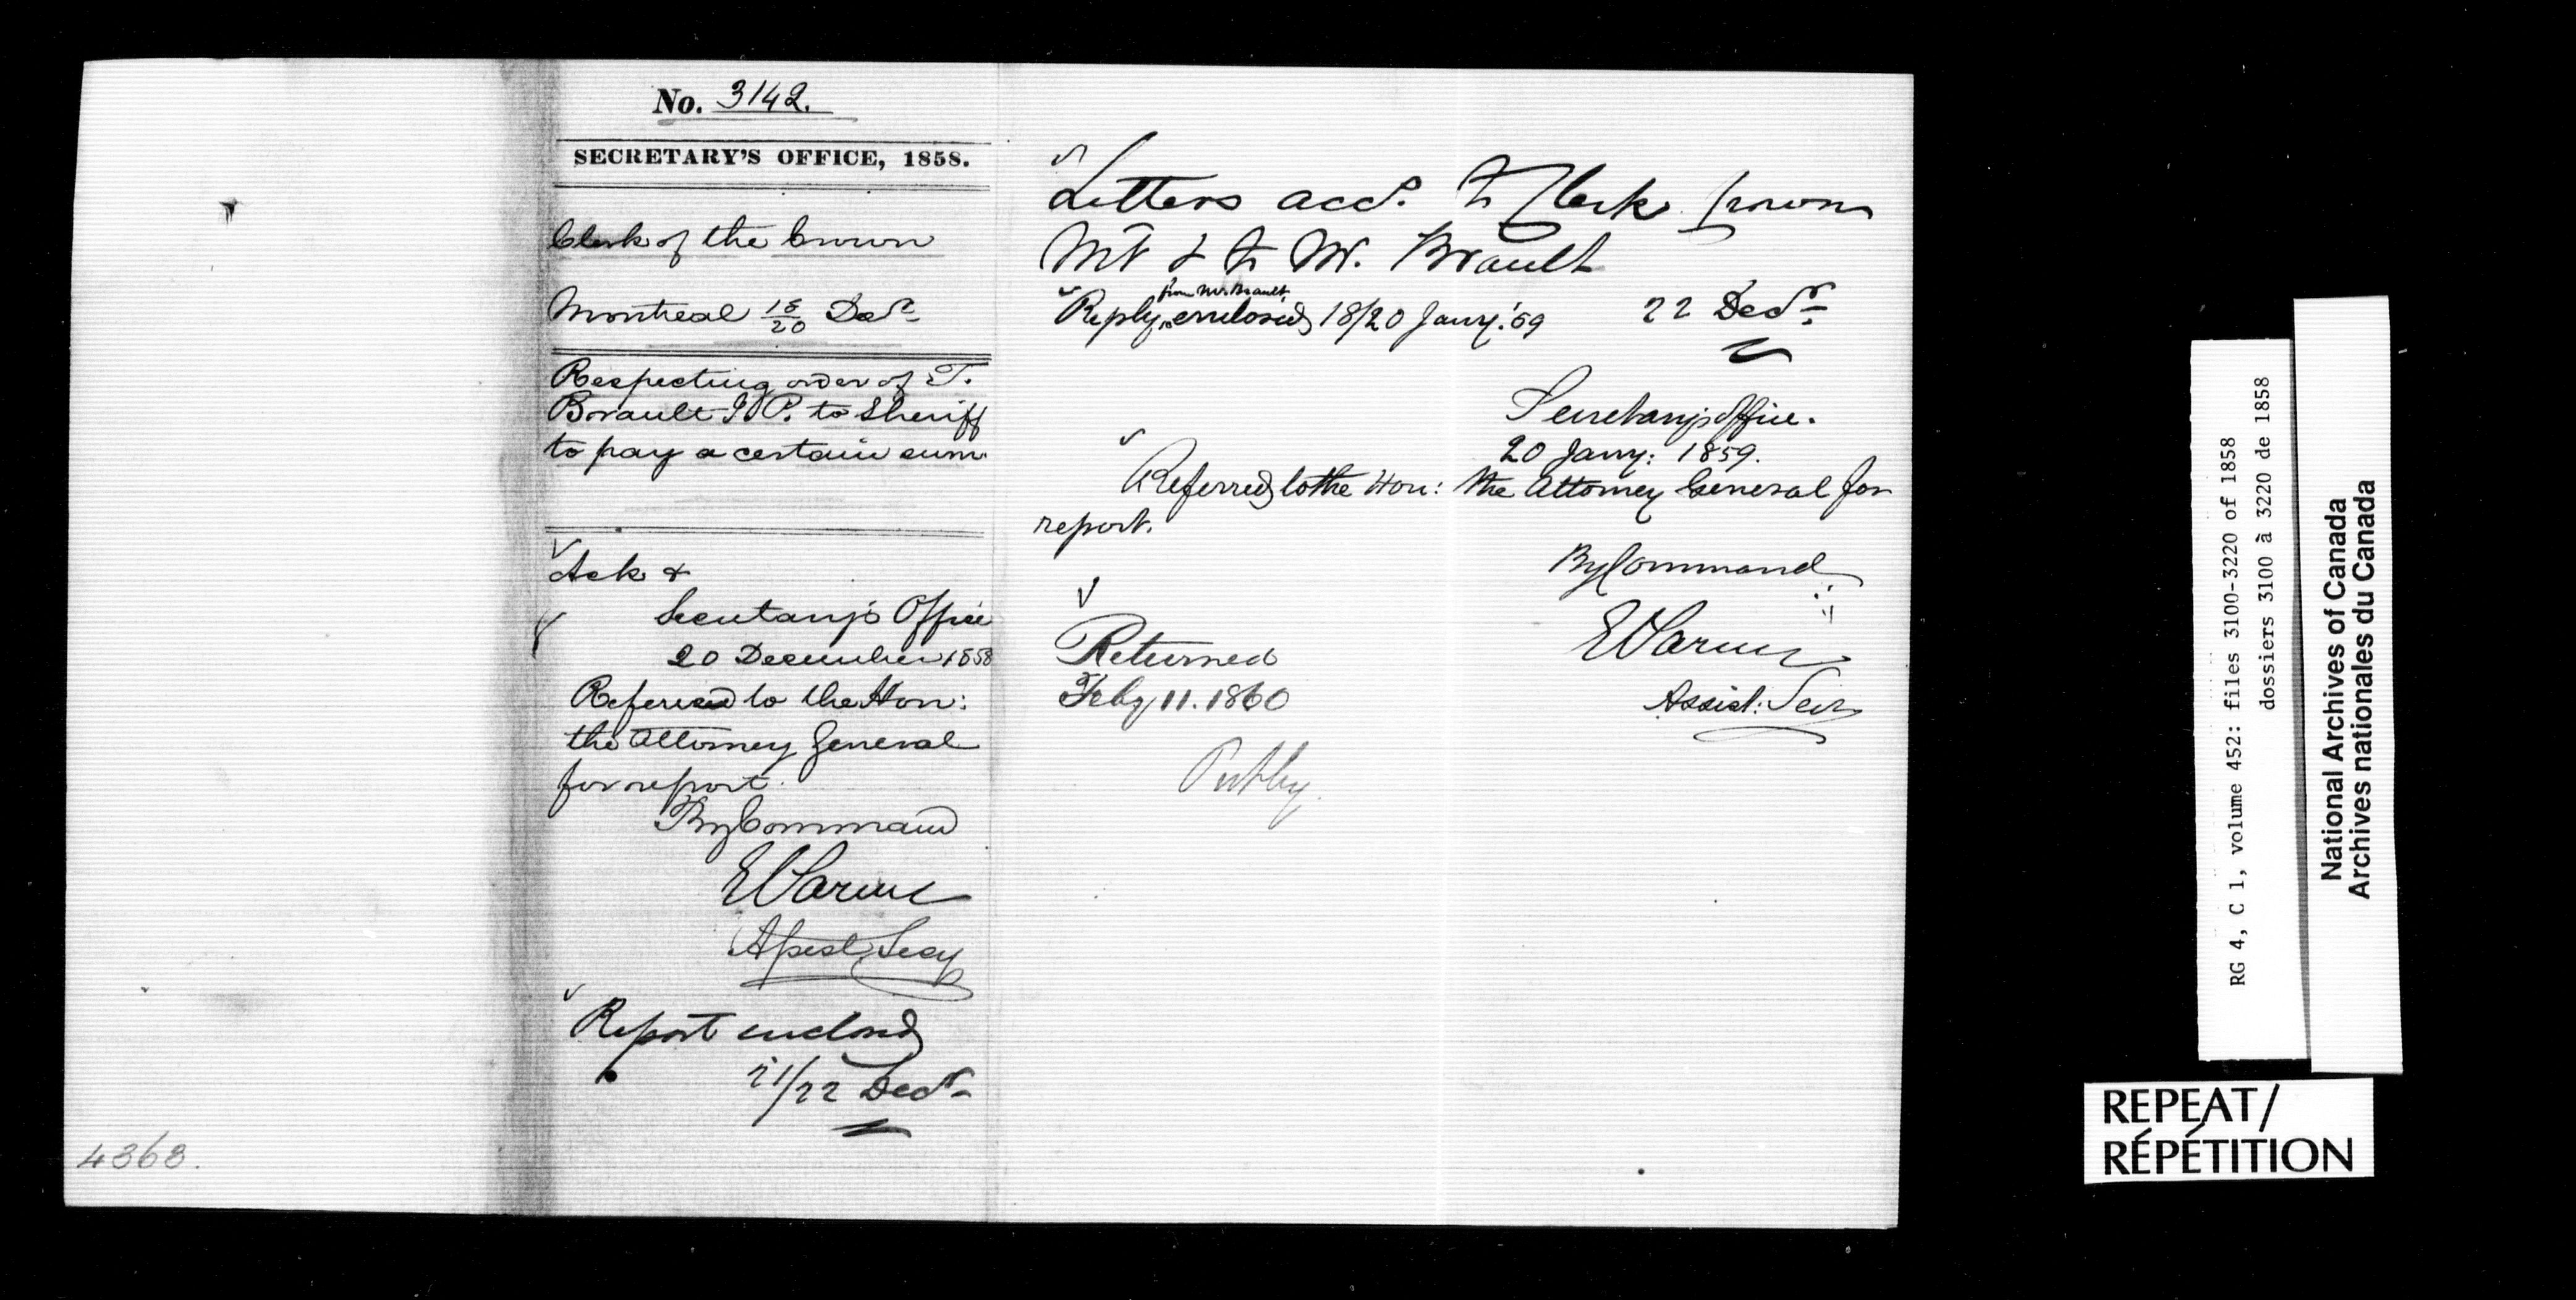 No. 3142.
SECRETARY'S OFFICE, 1858.
Clerk of the Crown
Montreal 18/20 Decr
Respecting order of T.
Brault J P. to Sheriff
to pay a certain sum.
Ack &
Secretary's Office
20 December 1858
Referred to the Hon:
the Attorney General
for report.
By Command
E Parent
Assist Secy
Report enclosed
21/22 Decr
4363.
Letters accg. to Clerk Crown
Mt & to Mr. Brault
22 Decr
from Mr. Brault
Reply enclosed 18/20 Jany. '59
Secretary's Office.
20 Jany: 1859.
Referred to the Hon: the Attorney General for
report.
By Command
E Parent
Assist: Secy
Returned
Feby 11. 1860
Put by.
RG 4, C 1, volume 452: files 3100-3220 of 1858
dossiers 3100 à 3220 de 1858
National Archives of Canada
Archives nationales du Canada
REPEAT/
RÉPÉTITION